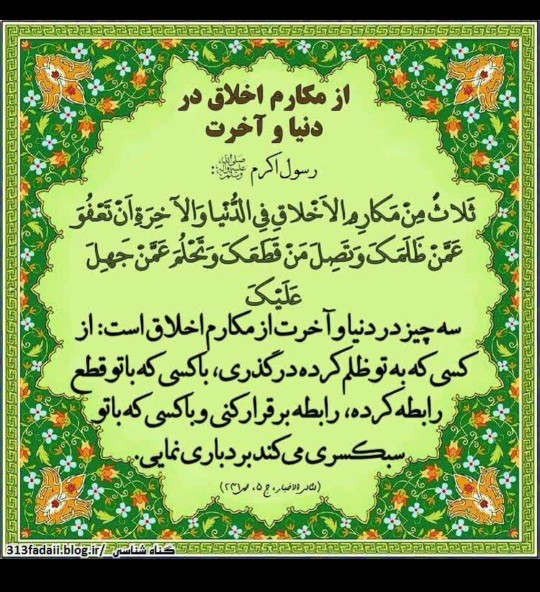 از مکارم اخلاق در
دنیا و آخرت
رسول اکرم ﷺ:
ثَلاثُ مِنْ مَکارِمِ الاَخْلاقِ فِی الدُّنْیا وَالآخِرَةِ اَنْ تَعْفُوَ
عَمَّنْ ظَلَمَکَ وَتَصِلَ مَنْ قَطَعَکَ وَتَحْلُمَ عَمَّنْ جَهِلَ
عَلَیْکَ
سه چیز در دنیا و آخرت از مکارم اخلاق است: از
کسی که به تو ظلم کرده درگذری، با کسی که با تو قطع
رابطه کرده، رابطه برقرار کنی و با کسی که با تو
سبکسری می‌کند بردباری نمایی.
313fadaii.blog.ir/ گناه شناسی